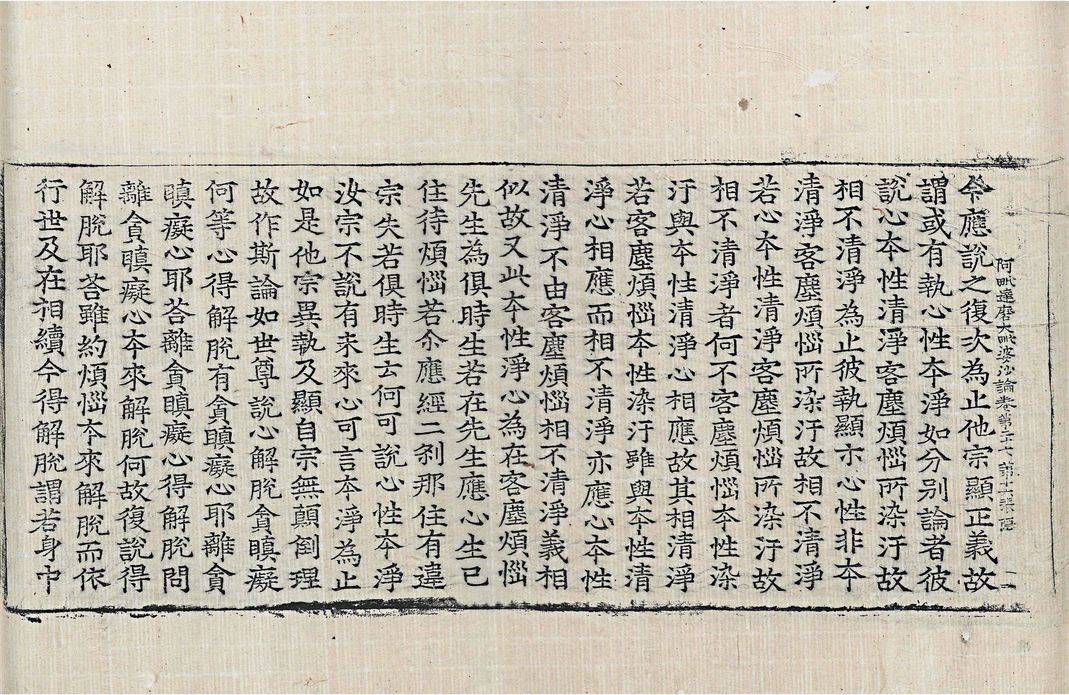 今應說之復次為止他宗顯正義故
謂或有執心性本淨如分別論者彼
說心本性清淨客塵煩惱所染汙故
相不清淨為止彼執顯示心性非本
清淨客塵煩惱所染汙故相不清淨
若心本性清淨客塵煩惱所染汙故
相不清淨者何不客塵煩惱本性染
汙與本性清淨心相應故其相清淨
若客塵煩惱本性染汙雖與本性清
淨心相應而相不清淨亦應心本性
清淨不由客塵煩惱相不清淨義相
似故又此本性淨心為在客塵煩惱
先生為俱時生若在先生應心生已
住待煩惱若尒應經二刹那住有違
宗失若俱時生云何可說心性本淨
汝宗不說有未來心可言本淨為止
如是他宗異執及顯自宗無顛倒理
故作斯論如世尊說心解脫貪瞋癡
何等心得解脫有貪瞋癡心耶離貪
瞋癡心耶荅離貪瞋癡心得解脫問
離貪瞋癡心本來解脫何故復說得
解脫耶荅雖約煩惱本來解脫而依
行世及在相續今得解脫謂若身中
阿毗達磨大毗婆沙論卷第二十七 第十一張